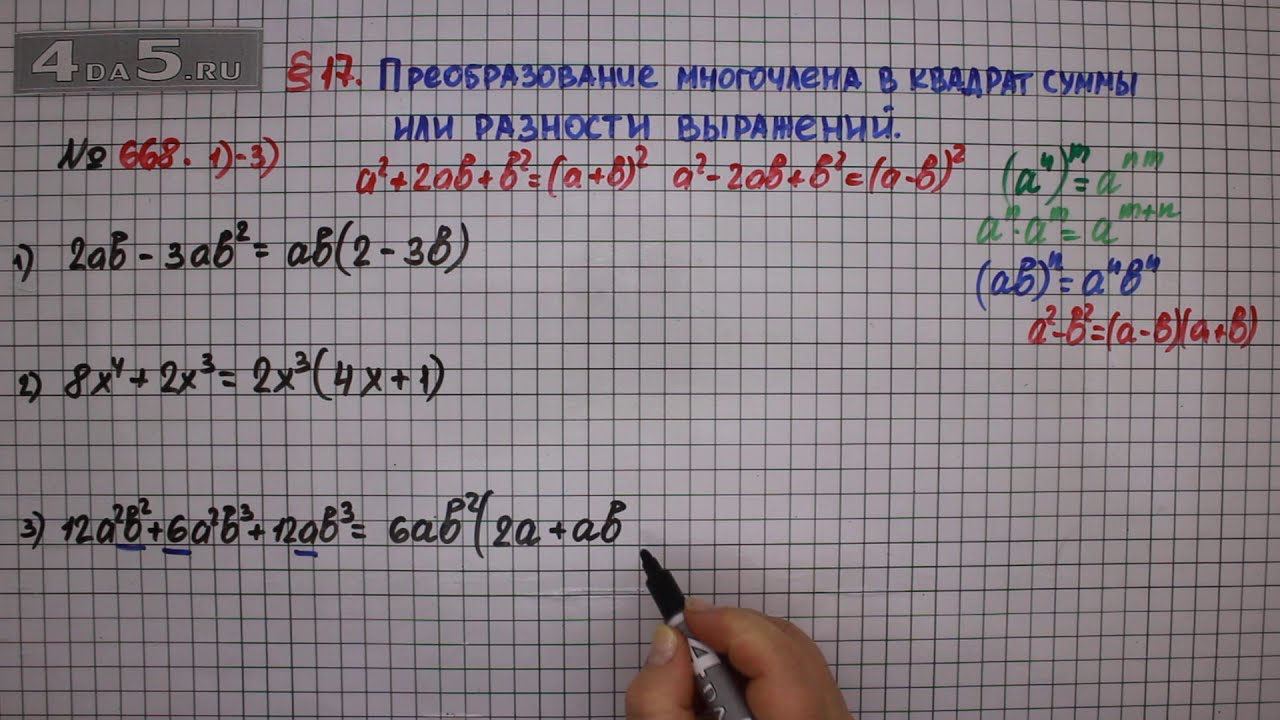 4DA5.RU
§ 17. Преобразование многочлена в квадрат суммы
или разности выражений.
№ 668. 1)-3)
a²+2aв+в²=(a+в)² a²-2aв+в²=(a-в)²
(aⁿ)ᵐ=aⁿᵐ
aⁿ·aᵐ=aᵐ⁺ⁿ
(aв)ⁿ=aⁿвⁿ
a²-в²=(a-в)(a+в)
1) 2aв-3aв²=aв(2-3в)
2) 8x⁴+2x³=2x³(4x+1)
3) 12a²в²+6a²в³+12aв³=6aв²(2a+aв